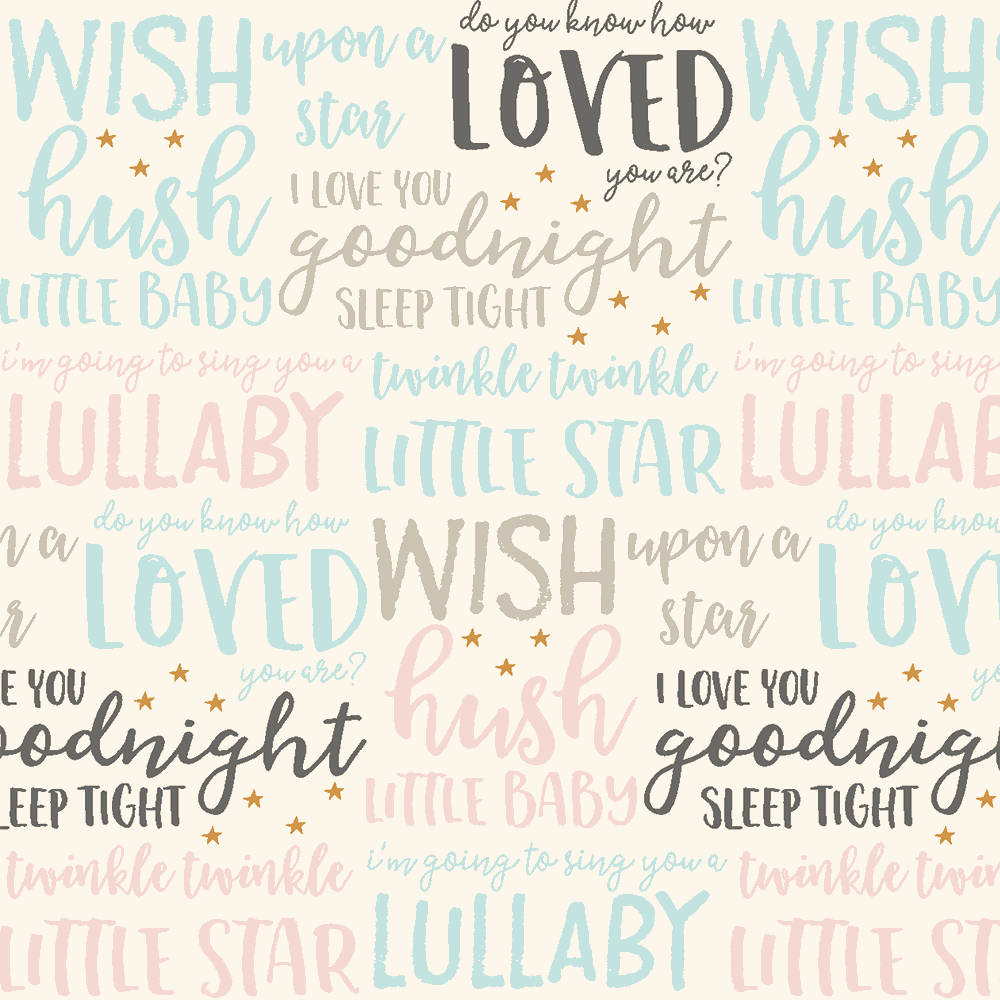 WISH upon a
star
do you know how
LOVED
you are?
WISH
hush
LITTLE BABY
I LOVE YOU
goodnight
SLEEP TIGHT
hush
LITTLE BABY
i'm going to sing you a
LULLABY
twinkle twinkle
LITTLE STAR
i'm going to sing
LULLAB
n a
r
do you know how
LOVED
you are?
WISH upon a
star
do you know
LOV
yo
E YOU
oodnight
SLEEP TIGHT
hush
LITTLE BABY
I LOVE YOU
goodnigh
SLEEP TIGHT
twinkle twinkle
LITTLE STAR
i'm going to sing you a
LULLABY
twinkle twin
LITTLE ST